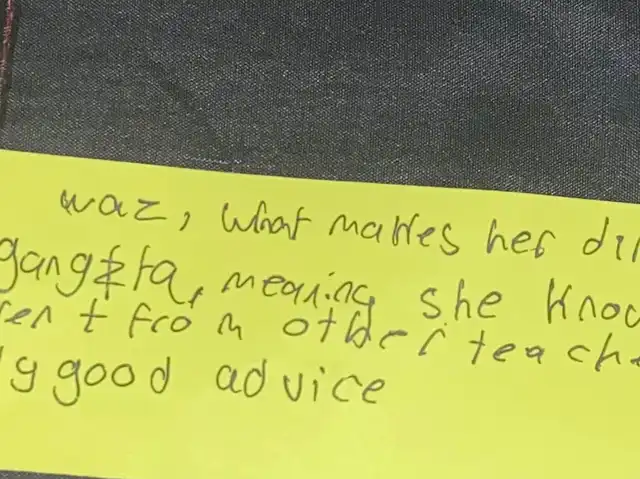 waz, What makes her di
gangzta, meaning she kno
ren t from other teach
g good advice